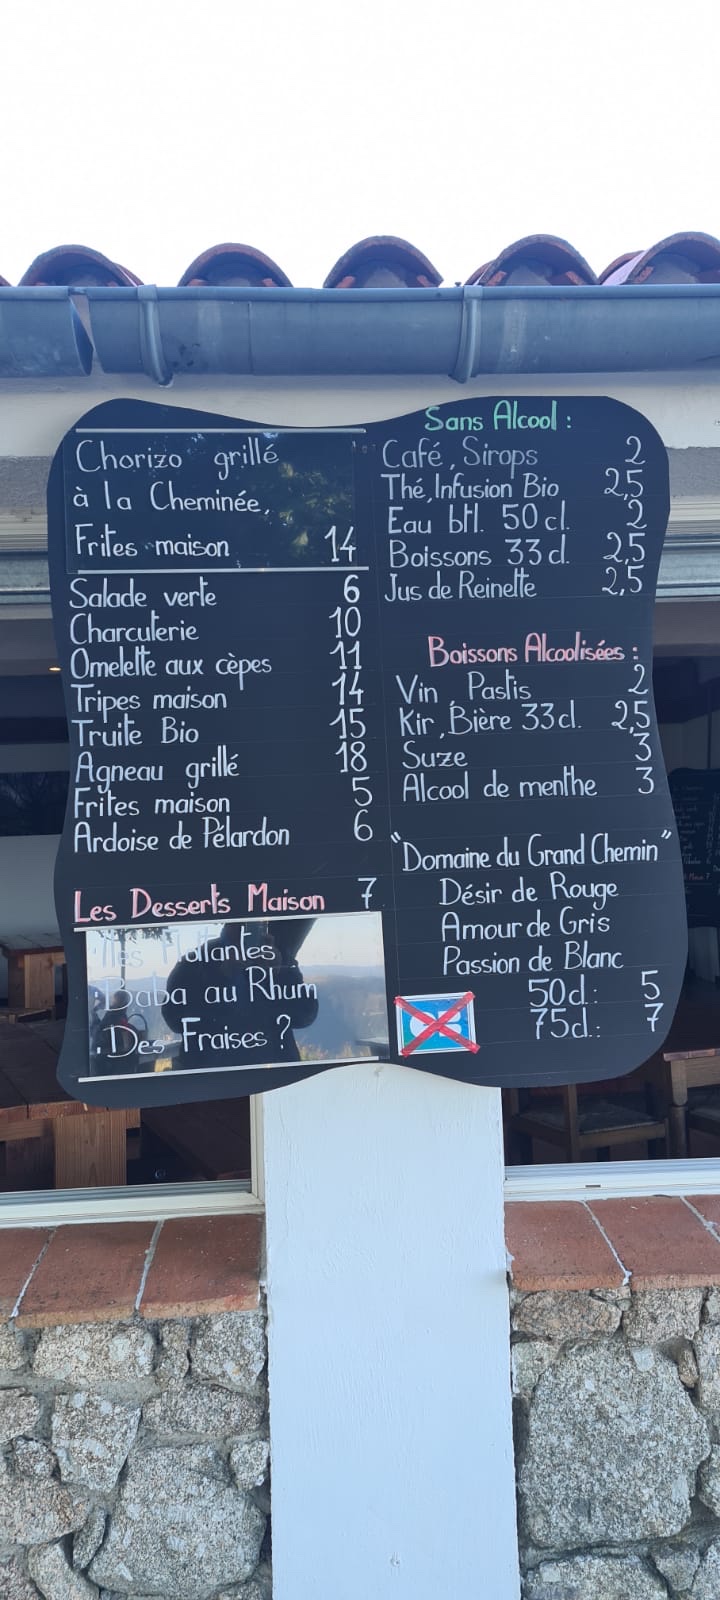 Chorizo grillé
à la Cheminée,
Frites maison 14
Salade verte 6
Charcuterie 10
Omelette aux cèpes 11
Tripes maison 14
Truite Bio 15
Agneau grillé 18
Frites maison 5
Ardoise de Pélardon 6
Les Desserts Maison 7
Flottantes
. Baba au Rhum
. Des Fraises ?
Sans Alcool :
Café, Sirops 2
Thé, Infusion Bio 2,5
Eau btl. 50 cl. 2
Boissons 33 cl. 2,5
Jus de Reinette 2,5
Boissons Alcoolisées :
Vin, Pastis 2
Kir, Bière 33 cl. 2,5
Suze 3
Alcool de menthe 3
"Domaine du Grand Chemin"
Désir de Rouge
Amour de Gris
Passion de Blanc
50cl.: 5
75cl.: 7
CB